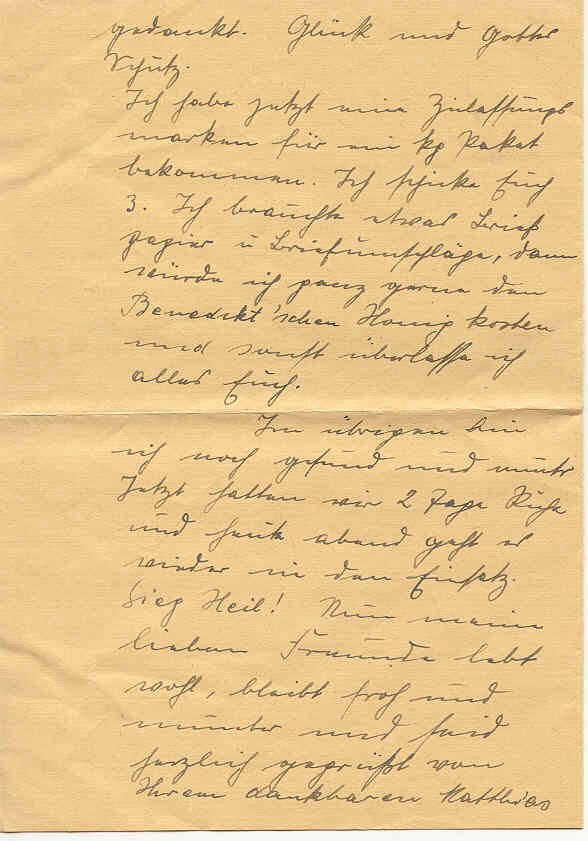 gedankt. Glück und Gottes
Schutz.
Ich habe jetzt eine Zulassungs
marken für ein kg Paket
bekommen. Ich schicke Euch
3. Ich brauchte etwas Brief
papier u Briefumschläge, dann
würde ich ganz gerne den
Benedikt'schen Honig kosten
und sonst überlasse ich
alles Euch.
Im übrigen bin
ich noch gesund und munter
Jetzt hatten wir 2 Tage Ruhe
und heute abend geht es
wieder in den Einsatz.
Sieg Heil! Nun meine
lieben Freunde lebt
wohl, bleibt froh und
munter und seid
herzlich gegrüßt von
Ihrem dankbaren Matthias